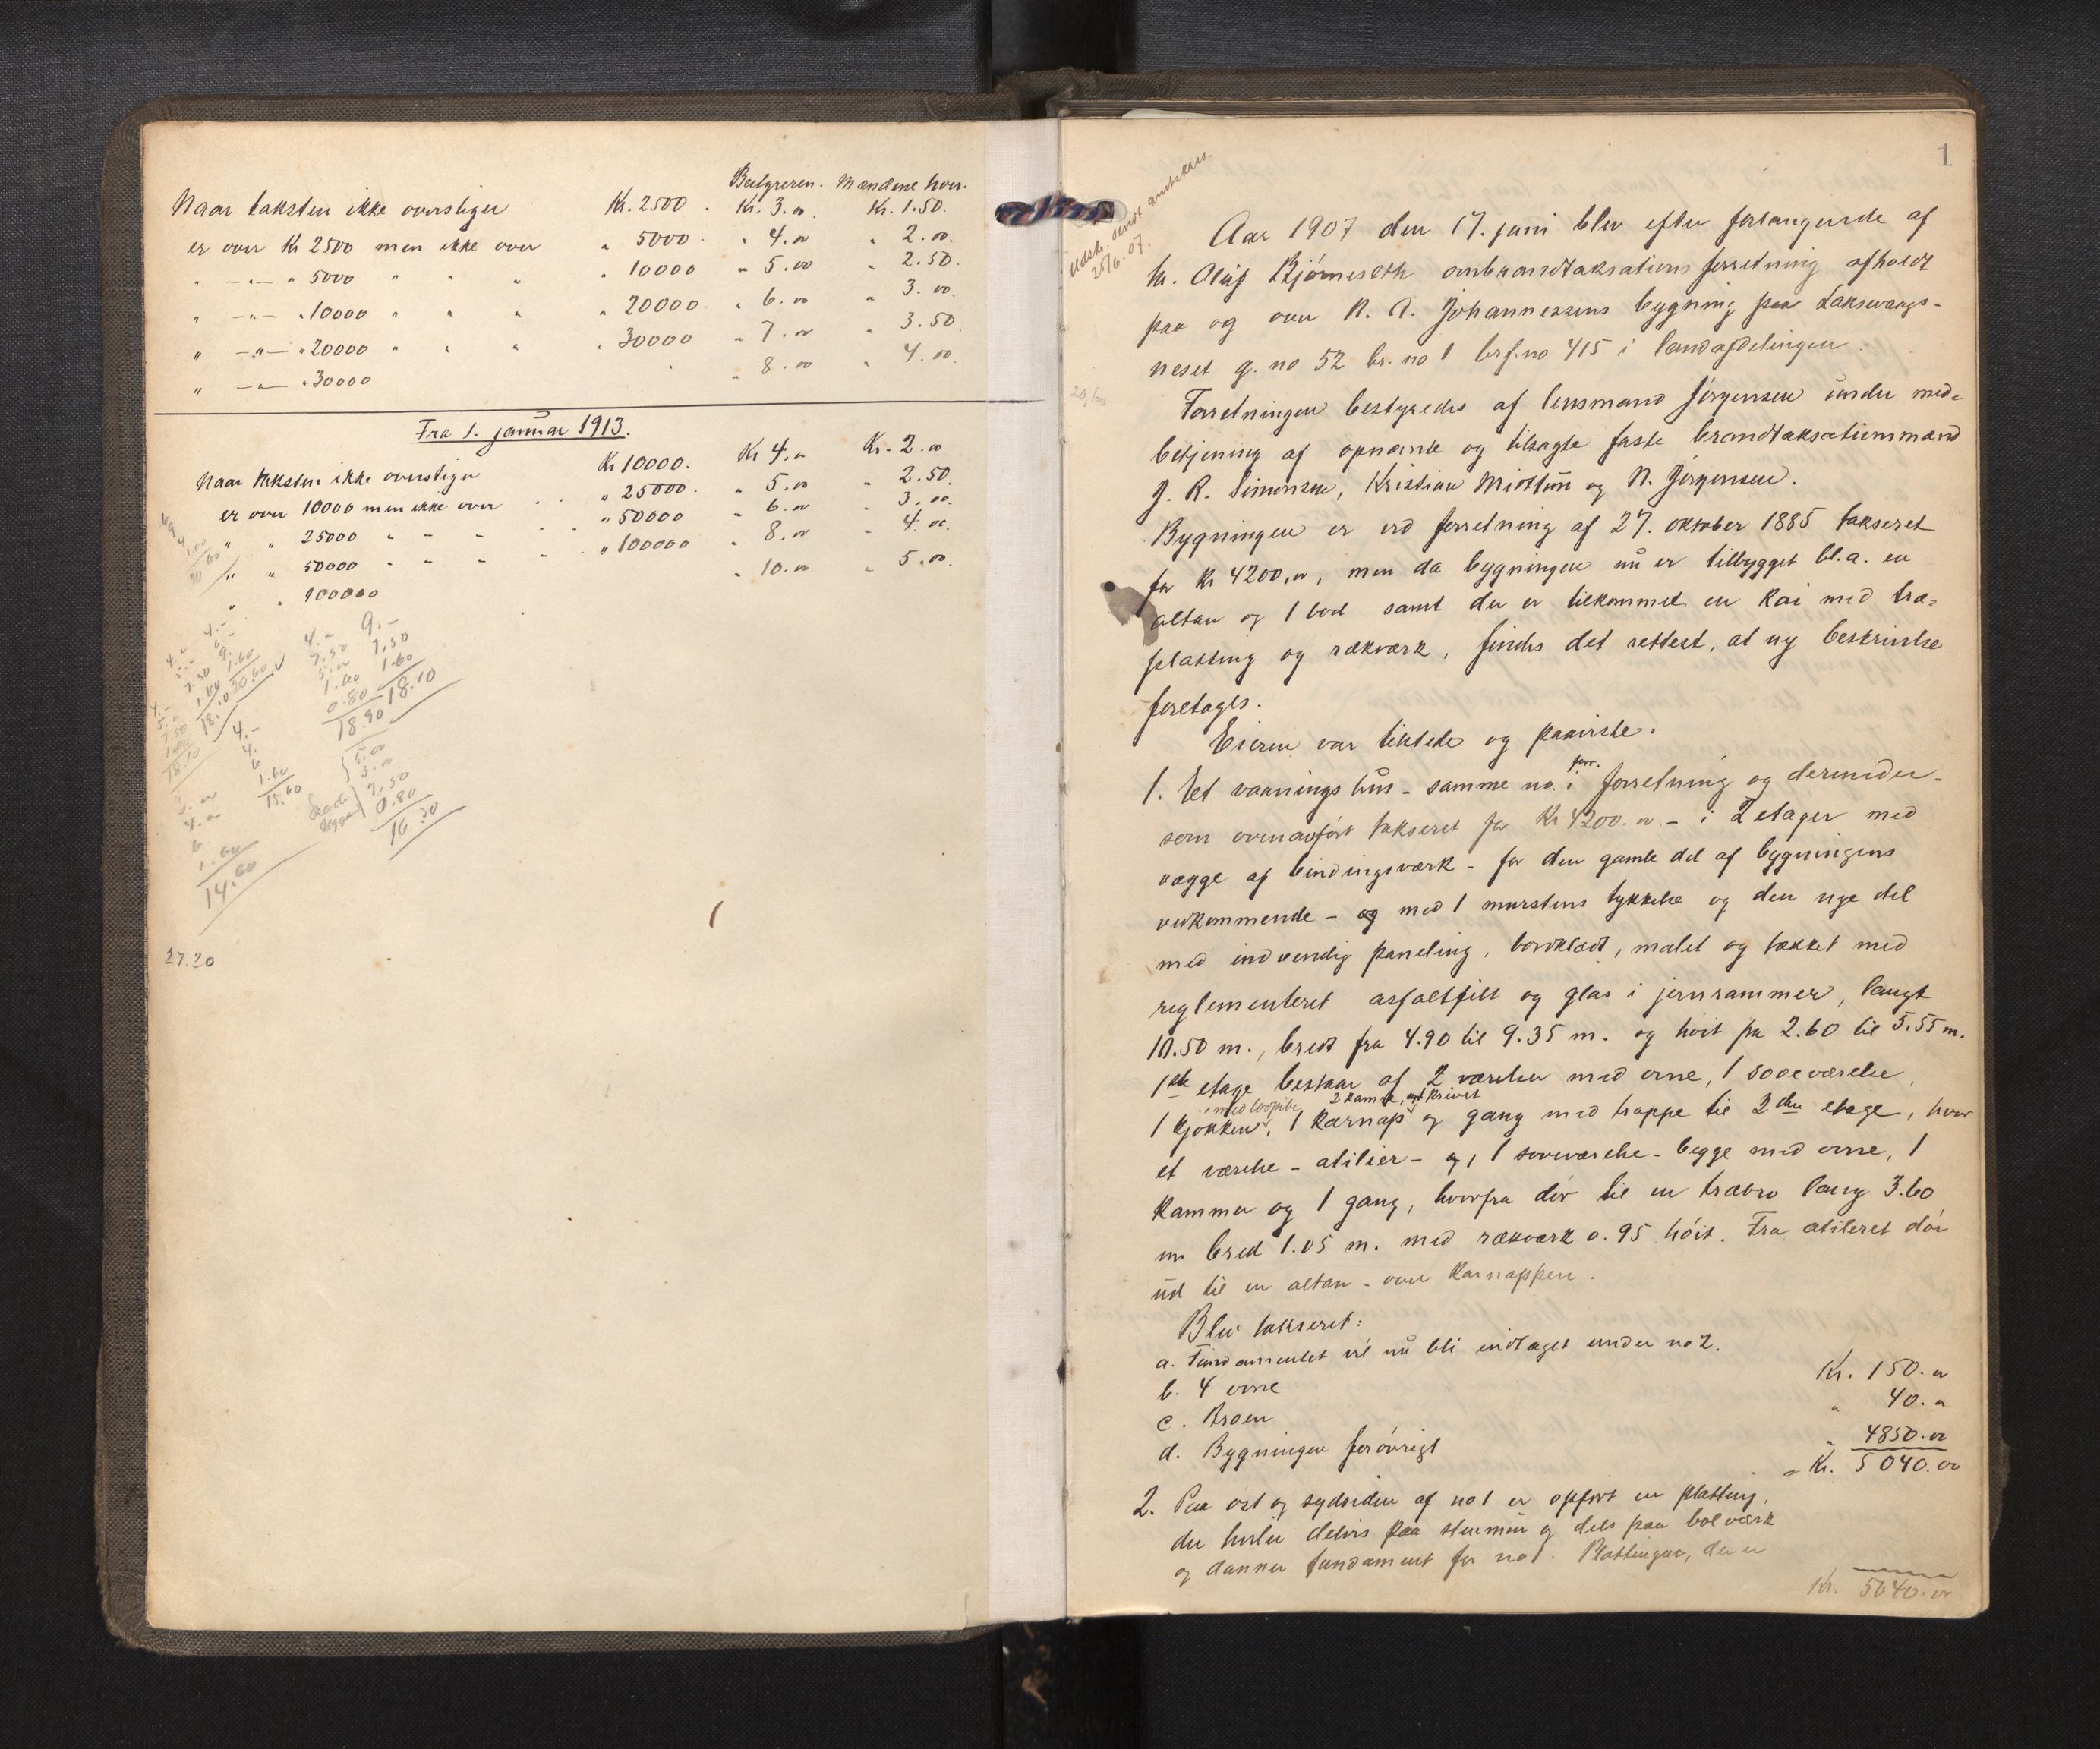 Bestyreren. Mændene hver.
Naar taksten ikke overstiger Kr. 2500. Kr. 3.00. Kr. 1.50.
er over Kr 2500 men ikke over " 5000. " 4.00 " 2.00.
" —"— " 5000 " " " " 10000 " 5.00 " 2.50.
" —"— " 10000 " " " " 20000 " 6.00 " 3.00.
" —"— " 20000 " " " " 30000 " 7.00 " 3.50.
" —"— " 30000 " 8.00 " 4.00.
Fra 1. januar 1913.
Naar taksten ikke overstiger Kr 10000. Kr 4.00 Kr. 2.00
er over 10000 men ikke over " 25000. " 5.00 " 2.50.
" " 25000 " - - " 50000 " 6.00 " 3.00.
" " 50000 " - - " 100000 " 8.00 " 4.00.
" " 100000 " 10.00 " 5.00.
9.-
7.50
1.60
18.10
18.90
5.00
3.00
7.50
0.80
16.30
1.60
15.60
1.60
14.60
27.20
1
Udskr. sendt amtskars.
25/6.07.
Aar 1907 den 17. juni blev efter forlangende af
hr. Olaf Bjørneseth ombrandtaksationsforretning afholdt
paa og over N. A. Johannessens bygning paa Laksevaags-
neset g. no 52 br. no 1 brf.no 415 i landafdelingen.
Forretningen bestyredes af lensmand Jørgensen under med-
betjening af opnævnte og tilsagte faste brandtaksationsmænd
J. R. Simonsen, Kristian Midttun og N. Jørgensen.
Bygningen er ved forretning af 27. oktober 1885 takseret
for Kr 4200,00, men da bygningen nu er tilbygget bl.a. en
altan og 1 bod samt der er tilkommet en kai med træ-
platting og rækværk, findes det rettest, at ny beskrivelse
foretages.
Eieren var tilstede og paaviste.
1. Et vaaningshus - samme no. i forr. forretning og derunder
som ovenanført takseret for Kr 4200.00 - i 2 etager med
vægge af bindingsværk - for den gamle del af bygningens
vedkommende - og med 1 murstens tykkelse og den nye del
med indvendig paneling, bordklædt, malet og tækket med
reglementeret asfaltfilt og glas i jernrammer, langt
10.50 m., bredt fra 4.90 til 9.35 m. og høit fra 2.60 til 5.55 m.
1ste etage bestaar af 2 værelser med ovne, 1 soveværelse,
2 kamre,
1 kjøkken, 1 karnap og gang med trappe til 2den etage, hvor
et værelse - atilier - og 1 soveværelse - begge med ovne, 1
kammer og 1 gang, hvorfra dør til en træbro lang 3.60
m bred 1.05 m. med rækværk 0.95 høit. Fra atileret dør
ud til en altan - over karnappen.
Blev takseret:
a. Fundamentet vil nu bli indtaget under no 2.
b. 4 ovne Kr. 150.00
c. Broen " 40.00
d. Bygningen forøvrigt " 4850.00
Kr. 5040.00
2. Paa øst og sydsiden af no 1 er opført en platting,
der hviler delvis paa stenmur og dels paa bolværk
og danner fundament for no 1. Plattingen, der er
Kr. 5040.00